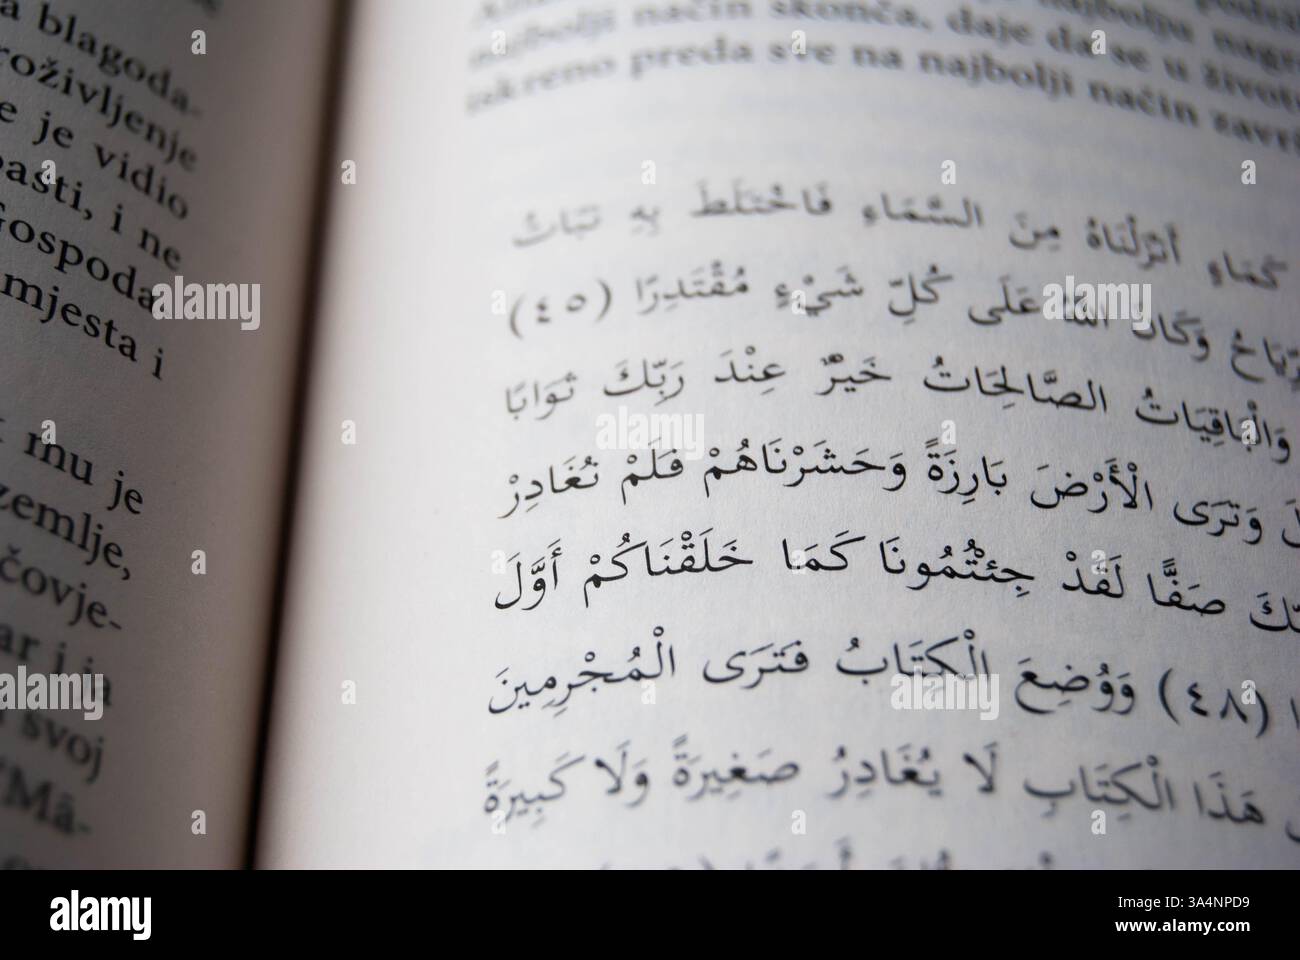 a blagoda-
roživljenje
e je vidio
pasti, i ne
Gospoda,
mjesta i
mu je
zemlje,
čovje-
ar i ja
svoj
"Mā-
najbolji način skonča, daje da se u život
iskreno preda sve na najbolji način zavr
كَمَاءٍ أَنْزَلْنَاهُ مِنَ السَّمَاءِ فَاخْتَلَطَ بِهِ نَبَاتُ
الرِّيَاحُ وَكَانَ اللَّهُ عَلَى كُلِّ شَيْءٍ مُقْتَدِرًا (٤٥)
وَالْبَاقِيَاتُ الصَّالِحَاتُ خَيْرٌ عِنْدَ رَبِّكَ ثَوَابًا
وَتَرَى الْأَرْضَ بَارِزَةً وَحَشَرْنَاهُمْ فَلَمْ نُغَادِرْ
صَفًّا لَقَدْ جِئْتُمُونَا كَمَا خَلَقْنَاكُمْ أَوَّلَ
(٤٨) وَوُضِعَ الْكِتَابُ فَتَرَى الْمُجْرِمِينَ
هَذَا الْكِتَابِ لَا يُغَادِرُ صَغِيرَةً وَلَا كَبِيرَةً
alamy
Image ID: 3A4NPD9
www.alamy.com